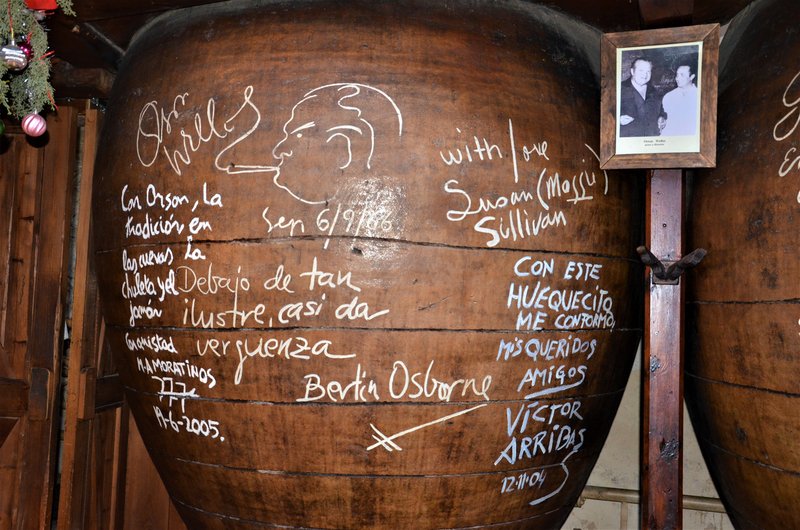 Orson Welles
Con Orson, La
tradición en
las cuevas La
chuleta y el
Jamón
Con amistad
M.A.MORATINOS
19-6-2005.
Sep 6/9/86
Debajo de tan
ilustre, casi da
verguenza
Bertin Osborne
with love
Susan (Massú)
Sullivan
CON ESTE
HUEQUECITO
ME CONFORMO,
MIS QUERIDOS
AMIGOS
VÍCTOR
ARRIBAS
12.11.04